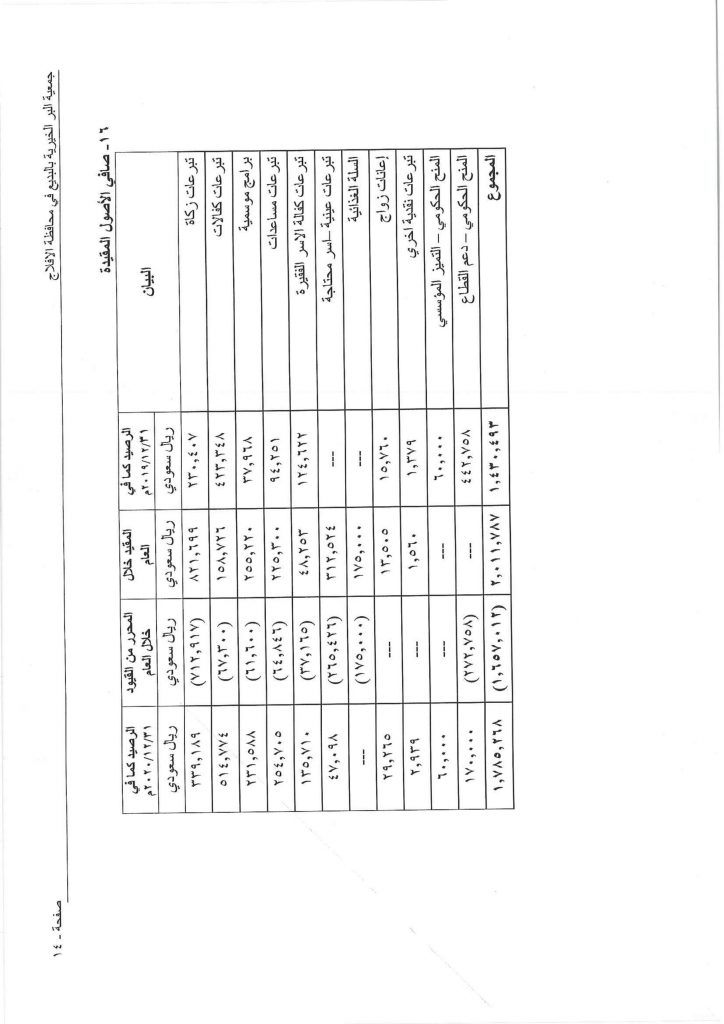 جمعية البر الخيرية بالبديع في محافظة الافلاج
١٦- صافي الأصول المقيدة
البيان الرصيد كما في ٢٠١٩/١٢/٣١م المقيد خلال العام المحرر من القيود خلال العام الرصيد كما في ٢٠٢٠/١٢/٣١م
ريال سعودي ريال سعودي ريال سعودي ريال سعودي
تبرعات زكاة ٢٣٠,٤٠٧ ٨٢١,٦٩٩ (٧١٢,٩١٧) ٣٣٩,١٨٩
تبرعات كفالات ٤٢٣,٣٤٨ ١٥٨,٧٢٦ (٦٧,٣٠٠) ٥١٤,٧٧٤
برامج موسمية ٣٧,٩٦٨ ٢٥٥,٢٢٠ (٦١,٦٠٠) ٢٣١,٥٨٨
تبرعات مساعدات ٩٤,٢٥١ ٢٢٥,٣٠٠ (٦٤,٨٤٦) ٢٥٤,٧٠٥
تبرعات كفالة الاسر الفقيرة ١٢٤,٦٢٢ ٤٨,٢٥٣ (٣٧,١٦٥) ١٣٥,٧١٠
تبرعات عينية –اسر محتاجة --- ٣١٢,٥٢٤ (٢٦٥,٤٢٦) ٤٧,٠٩٨
السلة الغذائية --- ١٧٥,٠٠٠ (١٧٥,٠٠٠) ---
إعانات زواج ١٥,٧٦٠ ١٣,٥٠٥ --- ٢٩,٢٦٥
تبرعات نقدية اخري ١,٣٧٩ ١,٥٦٠ --- ٢,٩٣٩
المنح الحكومي – التميز المؤسسي ٦٠,٠٠٠ --- --- ٦٠,٠٠٠
المنح الحكومي – دعم القطاع ٤٤٢,٧٥٨ --- (٢٧٢,٧٥٨) ١٧٠,٠٠٠
المجموع ١,٤٣٠,٤٩٣ ٢,٠١١,٧٨٧ (١,٦٥٧,٠١٢) ١,٧٨٥,٢٦٨
صفحة - ١٤